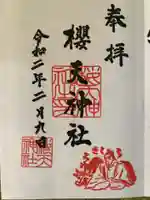 奉拝
櫻天神社
令和二年二月九日